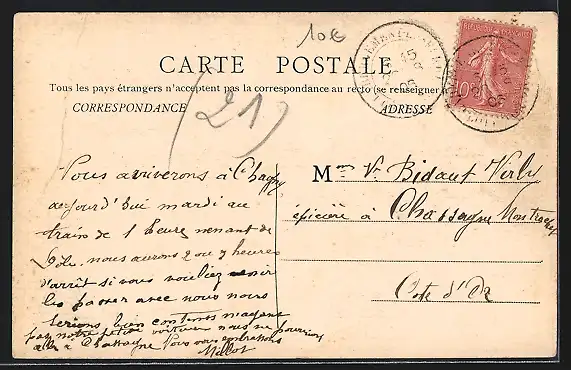 10€
CARTE POSTALE
Tous les pays étrangers n'acceptent pas la correspondance au recto (se renseigner à
CORRESPONDANCE
ADRESSE
(21)
REPUBLIQUE FRANÇAISE
10c
Nous arriverons à Chagny
aujourd'hui mardi au
train de 1 heure venant de
Dôle. nous aurons 2 ou 3 heures
d'arrêt si vous vouliez venir
les passer avec nous nous
serions bien contents
pas notre petite voiture nous ne pourrions
aller à Chassagne Vous vous embrassons
Millot
Mme Ve Bidaut Virly
épicière à Chassagne Montrachet
Cote d'Or